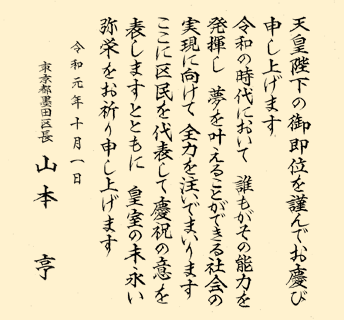 天皇陛下の御即位を謹んでお慶び
申し上げます
令和の時代において 誰もがその能力を
発揮し 夢を叶えることができる社会の
実現に向けて 全力を注いでまいります
ここに区民を代表して慶祝の意を
表しますとともに 皇室の末永い
弥栄をお祈り申し上げます
令和元年十月一日
東京都墨田区長 山本 亨